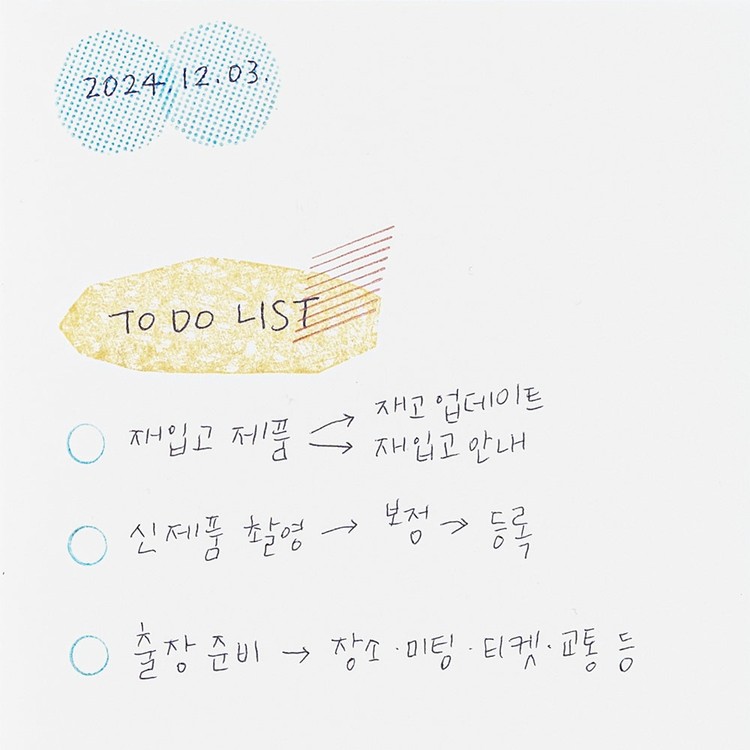 2024.12.03.
TO DO LIST
재입고 제품 → 재고 업데이트
→ 재입고 안내
신제품 촬영 → 보정 → 등록
출장 준비 → 장소·미팅·티켓·교통 등